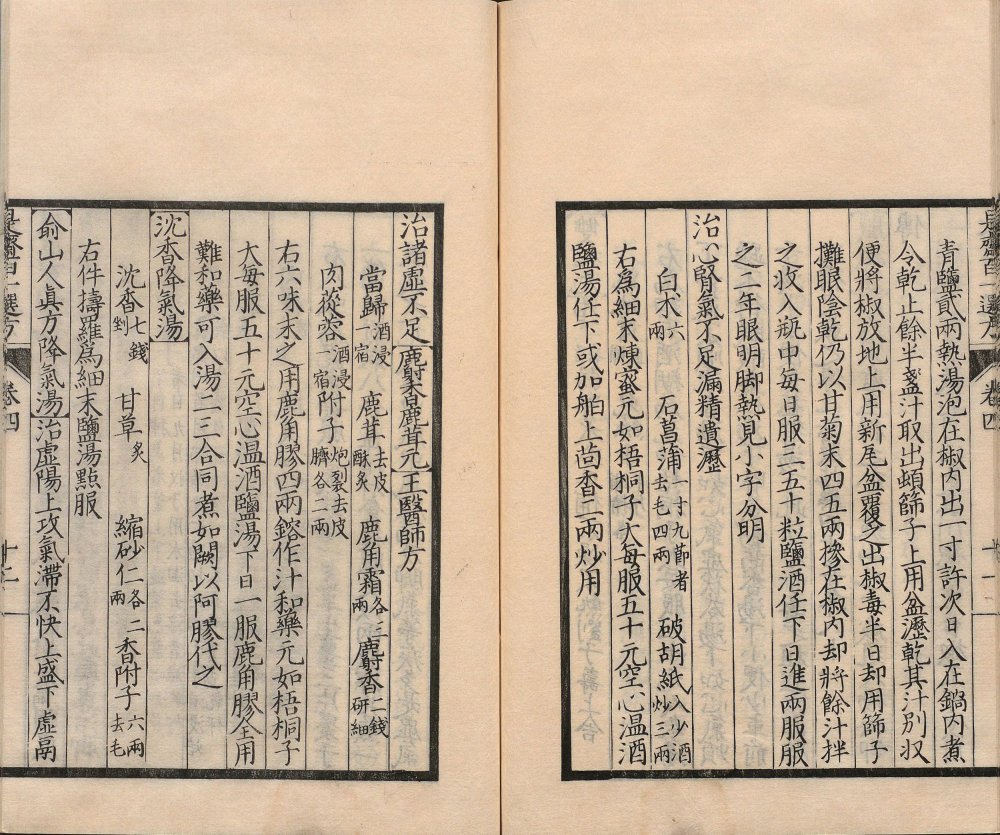 青鹽貳兩熱湯泡在椒內出一寸許次日入在鍋內煮
令乾止餘半盞汁取出頓篩子上用盆瀝乾其汁別収
便將椒放地上用新尾盆覆之出椒毒半日却用篩子
攤眠陰乾仍以甘菊末四五兩摻在椒內却將餘汁拌
之收入瓶中每日服三五十粒鹽酒任下日進兩服服
之二年眼明脚熱見小字分明
治心腎氣不足漏精遺瀝
白朮六兩 石菖蒲一寸九節者去毛四兩 破胡紙入少酒炒三兩
右為細末煉蜜元如梧桐子大每服五十元空心温酒
鹽湯任下或加舶上茴香二兩炒用
卷四
治諸虛不足麝香鹿茸元王醫師方
當歸酒浸一宿 鹿茸去皮酥炙 鹿角霜各三兩 麝香二錢研細
肉蓯蓉酒浸一宿 附子炮裂去皮臍各二兩
右六味末之用鹿角膠四兩鎔作汁和藥元如梧桐子
大每服五十元空心温酒鹽湯下日一服鹿角膠全用
難和藥可入湯二三合同煮如闕以阿膠代之
沈香降氣湯
沈香七錢剉 甘草炙 縮砂仁各二兩 香附子六兩去毛
右件擣羅爲細末鹽湯點服
俞山人眞方降氣湯治虛陽上攻氣滯不快上盛下虛膈
是齋百一選方 卷四 十二